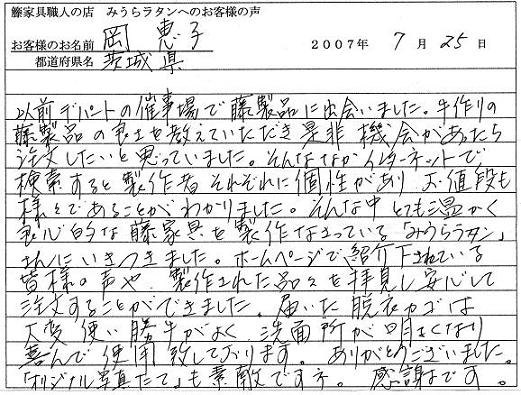 籐家具職人の店　みうらラタンへのお客様の声
お客様のお名前　岡　恵子　2007年 7月 25日
都道府県名　茨城県
以前デパートの催事場で藤製品に出会いました。手作りの
藤製品の良さを教えていただき是非機会があったら
注文したいと思っていました。そんななかインターネットで
検索すると製作者それぞれに個性があり お値段も
様々であることがわかりました。そんな中とても温かく
良心的な藤家具を製作なさっている「みうらラタン」
さんにいきつきました。ホームページで紹介下されている
皆様の声や、製作された品々を拝見し安心して
注文することができました。届いた脱衣カゴは
大変使い勝手がよく、洗面所が明るくなり
喜んで使用致しております。ありがとうございました。
「オリジナル写真たて」も素敵ですネ。感謝です。